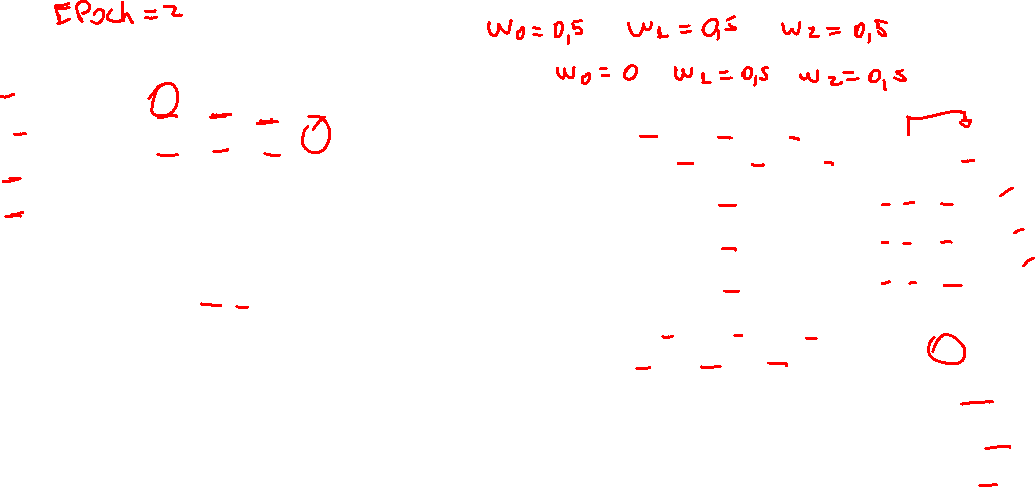 EPoch = 2
W0 = 0,5 W1 = 0,5 W2 = 0,5
W0 = 0 W1 = 0,5 W2 = 0,5